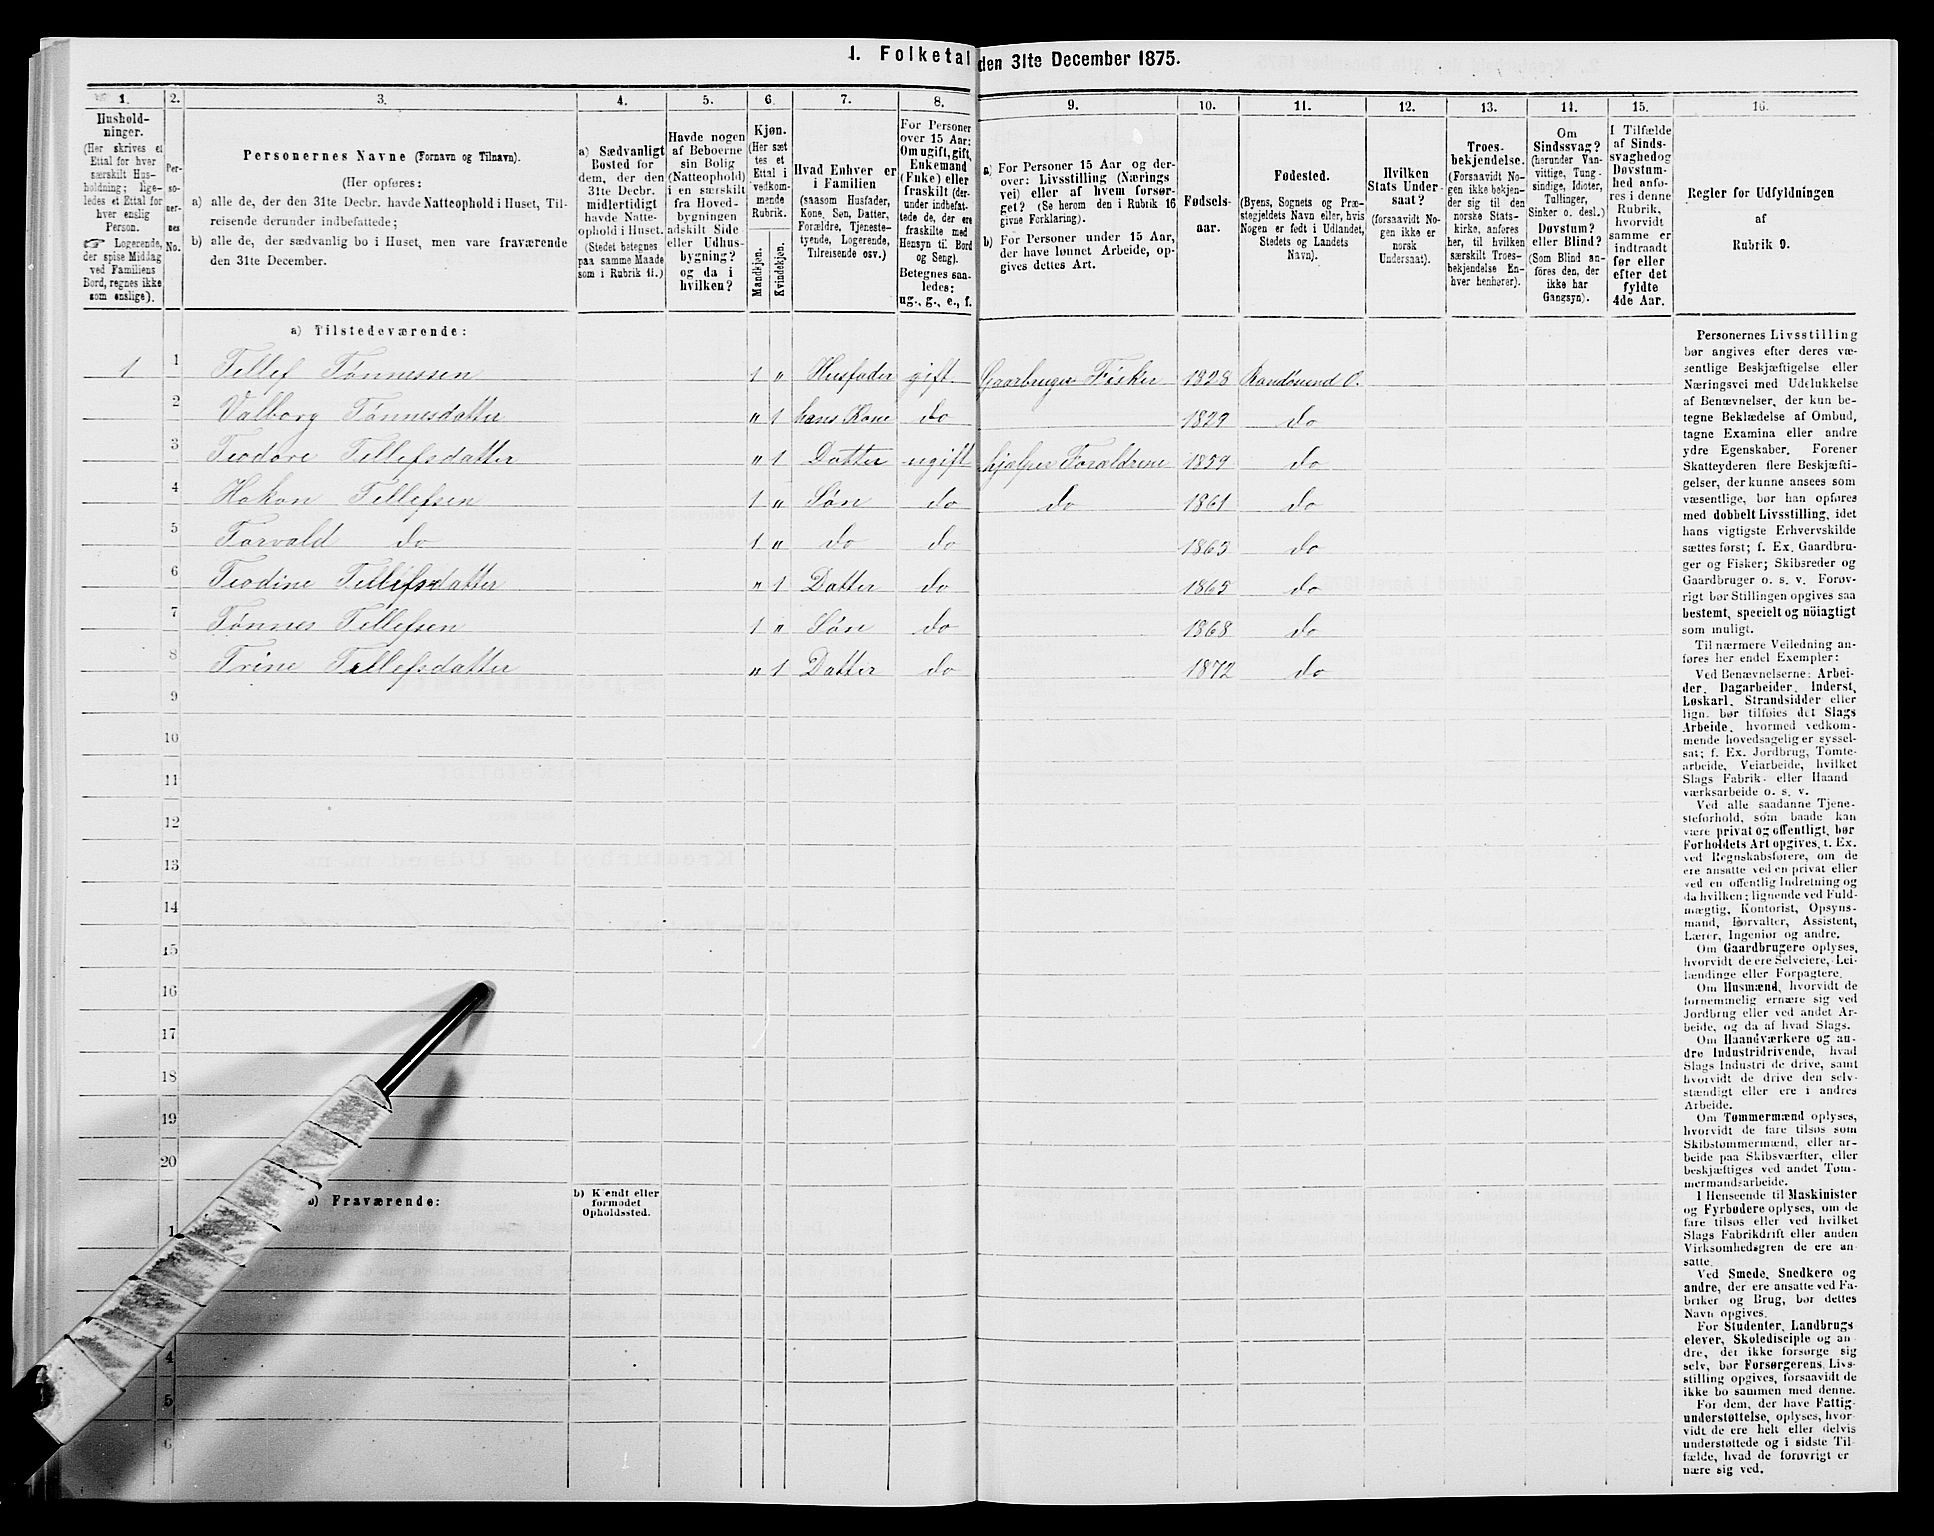 1. Folketal den 31te December 1875.
1.
Hushold-
ninger.
(Her skrives et
Ettal for hver
særskilt Hus-
holdning; lige-
ledes et Ettal for
hver enslig
Person.
☞ Logerende,
der spise Middag
ved Familiens
Bord, regnes ikke
som enslige).
2.
Per-
so-
ner-
nes
No.
3.
Personernes Navne (Fornavn og Tilnavn).
(Her opføres:
a) alle de, der den 31te Decbr. havde Natteophold i Huset, Til-
reisende derunder indbefattede;
b) alle de, der sædvanlig bo i Huset, men vare fraværende
den 31te December.
4.
a) Sædvanligt
Bosted for
dem, der den
31te Decbr.
midlertidigt
havde Natte-
ophold i Huset.
(Stedet betegnes
paa samme Maade
som i Rubrik 11.)
5.
Havde nogen
af Beboerne
sin Bolig
(Natteophold)
i en særskilt
fra Hoved-
bygningen
adskilt Side
eller Udhus-
bygning?
og da i
hvilken?
6.
Kjøn.
(Her sæt
tes et
Ettal i
vedkom-
mende
Rubrik.
Mandkjøn.
Kvindekjøn.
7.
Hvad Enhver er
i Familien
(saasom Husfader,
Kone, Søn, Datter,
Forældre, Tjeneste-
tyende, Logerende,
Tilreisende osv.)
8.
For Personer
over 15 Aar:
Om ugift, gift,
Enkemand
(Enke) eller
fraskilt (der-
under indbefat-
tede de, der ere
fraskilte med
Hensyn til Bord
og Seng).
Betegnes saa-
ledes:
ug., g., e., f.
9.
a) For Personer 15 Aar og der-
over: Livsstilling (Nærings
vei) eller af hvem forsør-
get? (Se herom den i Rubrik 16
givne Forklaring).
b) For Personer under 15 Aar,
der have lønnet Arbeide, op-
gives dettes Art.
10.
Fødsels-
aar.
11.
Fødested.
(Byens, Sognets og Præ-
stegjeldets Navn eller, hvis
Nogen er født i Udlandet,
Stedets og Landets
Navn).
12.
Hvilken
Stats Under-
saat?
(forsaavidt No-
gen ikke er
norsk
Undersaat).
13.
Troes-
bekjendelse.
(Forsaavidt No-
gen ikke bekjen-
der sig til den
norske Stats-
kirke, anføres
her, til hvilken
særskilt Troes-
bekjendelse En-
hver henhører).
14.
Om
Sindssvag?
(herunder Van-
vittige, Tung-
sindige, Idioter,
Tullinger,
Sinker o. desl.)
Døvstum?
eller Blind?
(Som Blind an-
føres den, der
ikke har
Gangsyn).
15.
I Tilfælde
af Sinds-
svaghed og
Døvstum-
hed anfø-
res i denne
Rubrik,
hvorvidt
samme er
indtraadt
før eller
efter det
fyldte
4de Aar.
16.
Regler for Udfyldningen
af
Rubrik 9.
a) Tilstedeværende:
1 1 Tellef Tønnessen 1 „ Husfader gift Gaarbruger Fisker 1828 Randøsund O.
2 Valborg Tønnesdatter „ 1 hans Kone do 1829 do
3 Teodore Tellefsdatter „ 1 Datter ugift hjælper Foraldrene 1859 do
4 Hakon Tellefsen 1 „ Søn do do 1861 do
5 Torvald do 1 „ do do 1863 do
6 Teodine Tellefsdatter „ 1 Datter do 1865 do
7 Tønnes Tellefsen 1 „ Søn do 1868 do
8 Trine Tellefsdatter „ 1 Datter do 1872 do
9
10
11
12
13
14
15
16
17
18
19
20
b) Fraværende:
b) Kjendt eller
formodet
Opholdssted.
1
4
5
6
Personernes Livsstilling
bør angives efter deres væ-
sentlige Beskjæftigelse eller
Næringsvei med Udelukkelse
af Benævnelser, der kun be-
tegne Beklædelse af Ombud,
tagne Examina eller andre
ydre Egenskaber. Forener
Skatteyderen flere Beskjæfti-
gelser, der kunne ansees som
væsentlige, bør han opføres
med dobbelt Livsstilling, idet
hans vigtigste Erhvervskilde
sættes først; f. Ex. Gaardbru-
ger og Fisker; Skibsreder og
Gaardbruger o. s. v. Forøv-
rigt bør Stillingen opgives saa
bestemt, specielt og nöiagtigt
som muligt.
Til nærmere Veiledning an-
føres her endel Exempler:
Ved Benævnelserne: Arbei-
der, Dagarbeider, Inderst,
Løskarl, Strandsidder eller
lign. bør tilføies det Slags
Arbeide, hvormed vedkom-
mende hovedsagelig er syssel-
sat; f. Ex. Jordbrug, Tomte-
arbeide, Veiarbeide, hvilket
Slags Fabrik- eller Haand
værksarbeide o. s. v.
Ved alle saadanne Tjene-
steforhold, som baade kan
være privat og offentligt, bør
Forholdets Art opgives, t. Ex.
ved Regnskabsførere, om de
ere ansatte ved en privat eller
ved en offentlig Indretning og
da hvilken; lignende ved Fuld-
mægtig, Kontorist, Opsyns-
mand, Forvalter, Assistent,
Lærer, Ingeniør og andre.
Om Gaardbrugere oplyses,
hvorvidt de ere Selveiere, Lei-
lændinge eller Forpagtere.
Om Husmænd, hvorvidt de
fornemmelig ernære sig ved
Jordbrug eller ved andet Ar-
beide, og da af hvad Slags.
Om Haandværkere og an-
dre Industridrivende, hvad
Slags Industri de drive, samt
hvorvidt de drive den selv-
stændigt eller ere i andres
Arbeide.
Om Tømmermænd oplyses,
hvorvidt de fare tilsøs som
Skibstømmermænd, eller ar-
beide paa Skibsværfter, eller
beskjæftiges ved andet Tøm-
mermandsarbeide.
I Henseende til Maskinister
og Fyrbødere oplyses, om de
fare tilsøs eller ved hvilket
Slags Fabrikdrift eller anden
Virksomhedsgren de ere an-
satte.
Ved Smede, Snedkere og
andre, der ere ansatte ved Fa-
briker og Brug, bør dettes
Navn opgives.
For Studenter, Landbrugs
elever, Skoledisciple og an
dre, det ikke forsørge sig
selv, bør Forsørgerens Livs-
stilling opgives, forsaavidt de
ikke bo sammen med denne.
For dem, der have Fattig-
understøttelse, oplyses, hvor-
vidt de ere helt eller delvis
understøttede og i sidste Til-
fælde, hvad de forøvrigt er
nære sig ved.